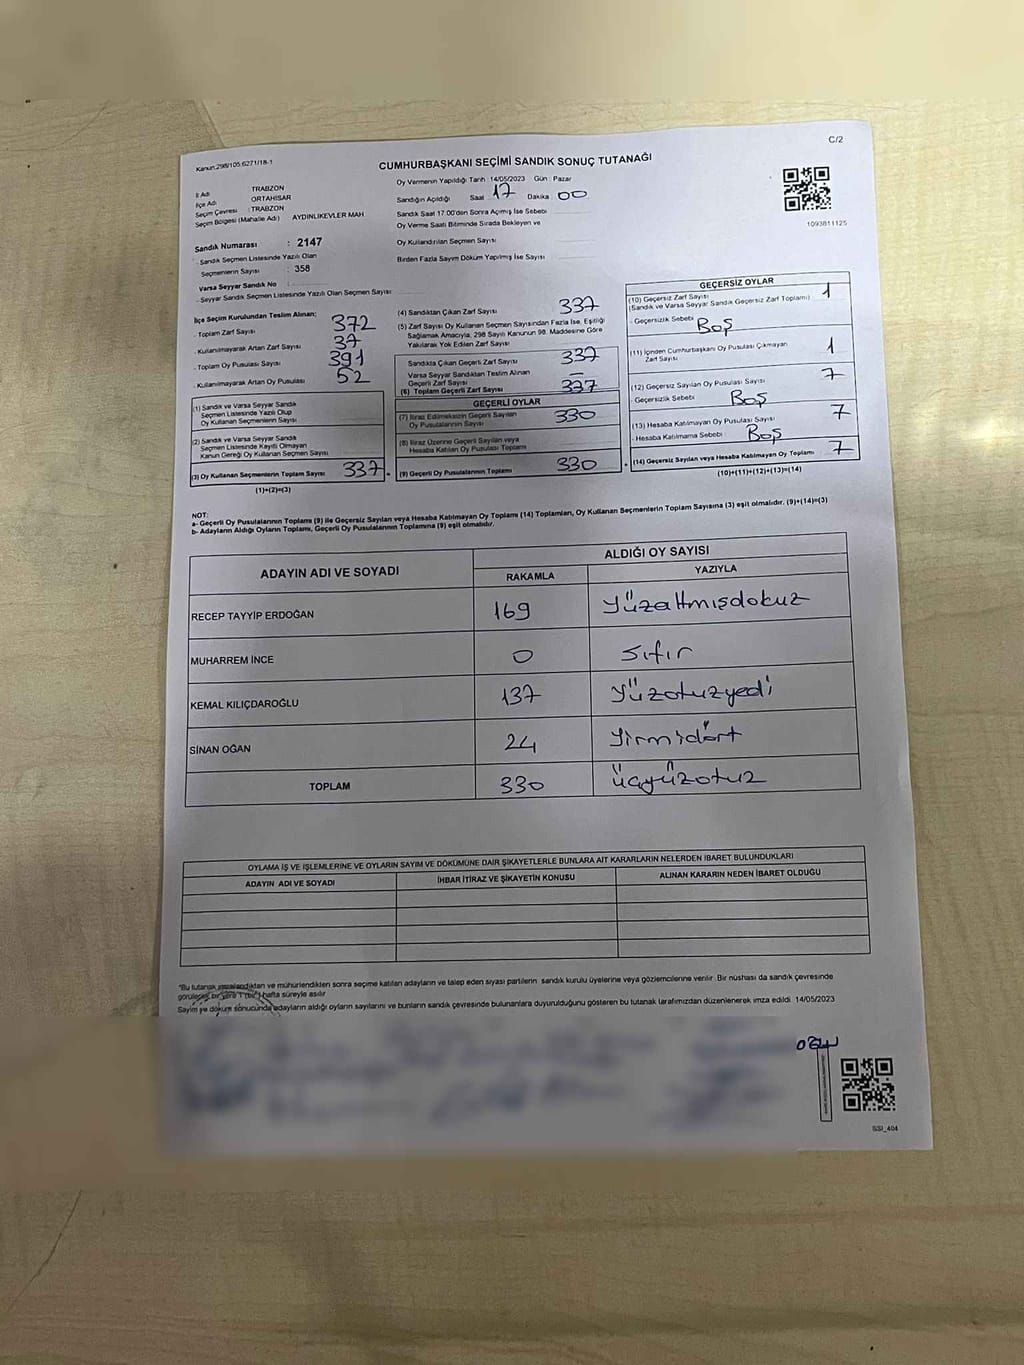 C/2
Kanun:298/105:6271/18-1
CUMHURBAŞKANI SEÇİMİ SANDIK SONUÇ TUTANAĞI
İl Adı TRABZON
İlçe Adı ORTAHİSAR
Seçim Çevresi : TRABZON
Seçim Bölgesi (Mahalle Adı) AYDINLIKEVLER MAH
Sandık Numarası : 2147
- Sandık Seçmen Listesinde Yazılı Olan
Seçmenlerin Sayısı : 358
Varsa Seyyar Sandık No
- Seyyar Sandık Seçmen Listesinde Yazılı Olan Seçmen Sayısı
Oy Vermenin Yapıldığı Tarih : 14/05/2023 Gün : Pazar
Sandığın Açıldığı Saat 17 Dakika 00
Sandık Saat 17:00'den Sonra Açılmış İse Sebebi
Oy Verme Saati Bitiminde Sırada Bekleyen ve
Oy Kullandırılan Seçmen Sayısı
Birden Fazla Sayım Döküm Yapılmış İse Sayısı
1093811125
İlçe Seçim Kurulundan Teslim Alınan;
- Toplam Zarf Sayısı 372
- Kullanılmayarak Artan Zarf Sayısı 37
- Toplam Oy Pusulası Sayısı 391
- Kullanılmayarak Artan Oy Pusulası 52
(1) Sandık ve Varsa Seyyar Sandık
Seçmen Listesinde Yazılı Olup
Oy Kullanan Seçmenlerin Sayısı
(2) Sandık ve Varsa Seyyar Sandık
Seçmen Listesinde Kayıtlı Olmayan
Kanun Gereği Oy Kullanan Seçmen Sayısı
(3) Oy Kullanan Seçmenlerin Toplam Sayısı 337
(1)+(2)=(3)
(4) Sandıktan Çıkan Zarf Sayısı 337
(5) Zarf Sayısı Oy Kullanan Seçmen Sayısından Fazla İse, Eşitliği
Sağlamak Amacıyla; 298 Sayılı Kanunun 98. Maddesine Göre
Yakılarak Yok Edilen Zarf Sayısı
Sandıkta Çıkan Geçerli Zarf Sayısı 337
Varsa Seyyar Sandıktan Teslim Alınan
Geçerli Zarf Sayısı —
(6) Toplam Geçerli Zarf Sayısı 337
GEÇERLİ OYLAR
(7) İtiraz Edilmeksizin Geçerli Sayılan
Oy Pusulalarının Sayısı 330
(8) İtiraz Üzerine Geçerli Sayılan veya
Hesaba Katılan Oy Pusulası Toplamı
(9) Geçerli Oy Pusulalarının Toplamı 330
GEÇERSİZ OYLAR
(10) Geçersiz Zarf Sayısı 1
(Sandık ve Varsa Seyyar Sandık Geçersiz Zarf Toplamı)
- Geçersizlik Sebebi Boş
(11) İçinden Cumhurbaşkanı Oy Pusulası Çıkmayan 1
Zarf Sayısı
(12) Geçersiz Sayılan Oy Pusulası Sayısı 7
- Geçersizlik Sebebi Boş
(13) Hesaba Katılmayan Oy Pusulası Sayısı 7
- Hesaba Katılmama Sebebi Boş
(14) Geçersiz Sayılan veya Hesaba Katılmayan Oy Toplamı 7
(10)+(11)+(12)+(13)=(14)
NOT:
a- Geçerli Oy Pusulalarının Toplamı (9) ile Geçersiz Sayılan veya Hesaba Katılmayan Oy Toplamı (14) Toplamları, Oy Kullanan Seçmenlerin Toplam Sayısına (3) eşit olmalıdır. (9)+(14)=(3)
b- Adayların Aldığı Oyların Toplamı, Geçerli Oy Pusulalarının Toplamına (9) eşit olmalıdır.
ADAYIN ADI VE SOYADI ALDIĞI OY SAYISI
RAKAMLA YAZIYLA
RECEP TAYYİP ERDOĞAN 169 Yüzaltmışdokuz
MUHARREM İNCE 0 Sıfır
KEMAL KILIÇDAROĞLU 137 Yüzotuzyedi
SİNAN OĞAN 24 Yirmidört
TOPLAM 330 Üçyüzotuz
OYLAMA İŞ VE İŞLEMLERİNE VE OYLARIN SAYIM VE DÖKÜMÜNE DAİR ŞİKAYETLERLE BUNLARA AİT KARARLARIN NELERDEN İBARET BULUNDUKLARI
ADAYIN ADI VE SOYADI İHBAR İTİRAZ VE ŞİKAYETİN KONUSU ALINAN KARARIN NEDEN İBARET OLDUĞU
"Bu tutanak imzalandıktan ve mühürlendikten sonra seçime katılan adayların ve talep eden siyasi partilerin sandık kurulu üyelerine veya gözlemcilerine verilir. Bir nüshası da sandık çevresinde
görülecek bir yere 1 (bir) hafta süreyle asılır
Sayım ve döküm sonucunda adayların aldığı oyların sayılarını ve bunların sandık çevresinde bulunanlara duyurulduğunu gösteren bu tutanak tarafımızdan düzenlenerek imza edildi. 14/05/2023
SSI_404